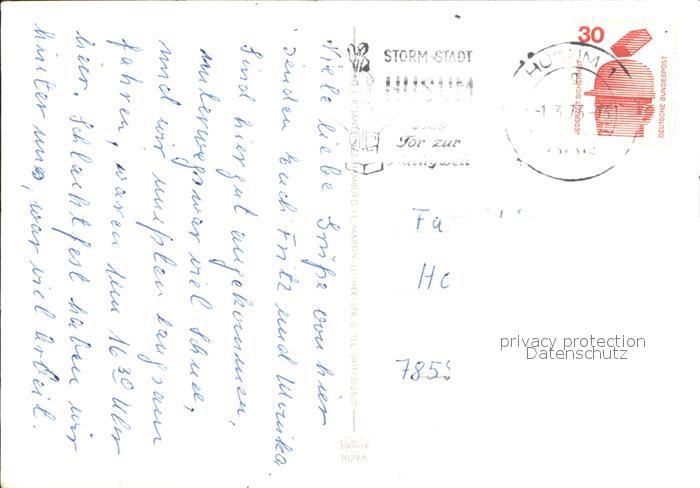 Viele liebe Grüße von hier
senden Euch Fritz und Monika
Sind hier gut angekommen,
unterwegs war viel Schnee,
und wir mußten langsam
fahren, waren um 16 30 Uhr
hier. Schlachtfest haben wir
hinter uns, war viel Arbeit.
STORM-STADT
HUSUM
Das
Tor zur
Halligwelt
HUSUM 1
30
JEDERZEIT SICHERHEIT
DEUTSCHE BUNDESPOST
Fa
Ho
7859
HAMBURG 11, MARTIN-LUTHER-STR.
Krüger
1029/6
privacy protection
Datenschutz